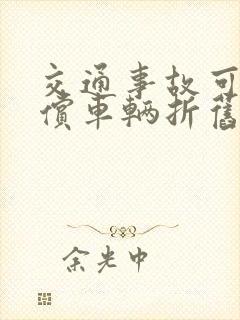 交通事故可
償車輛折舊
余光中